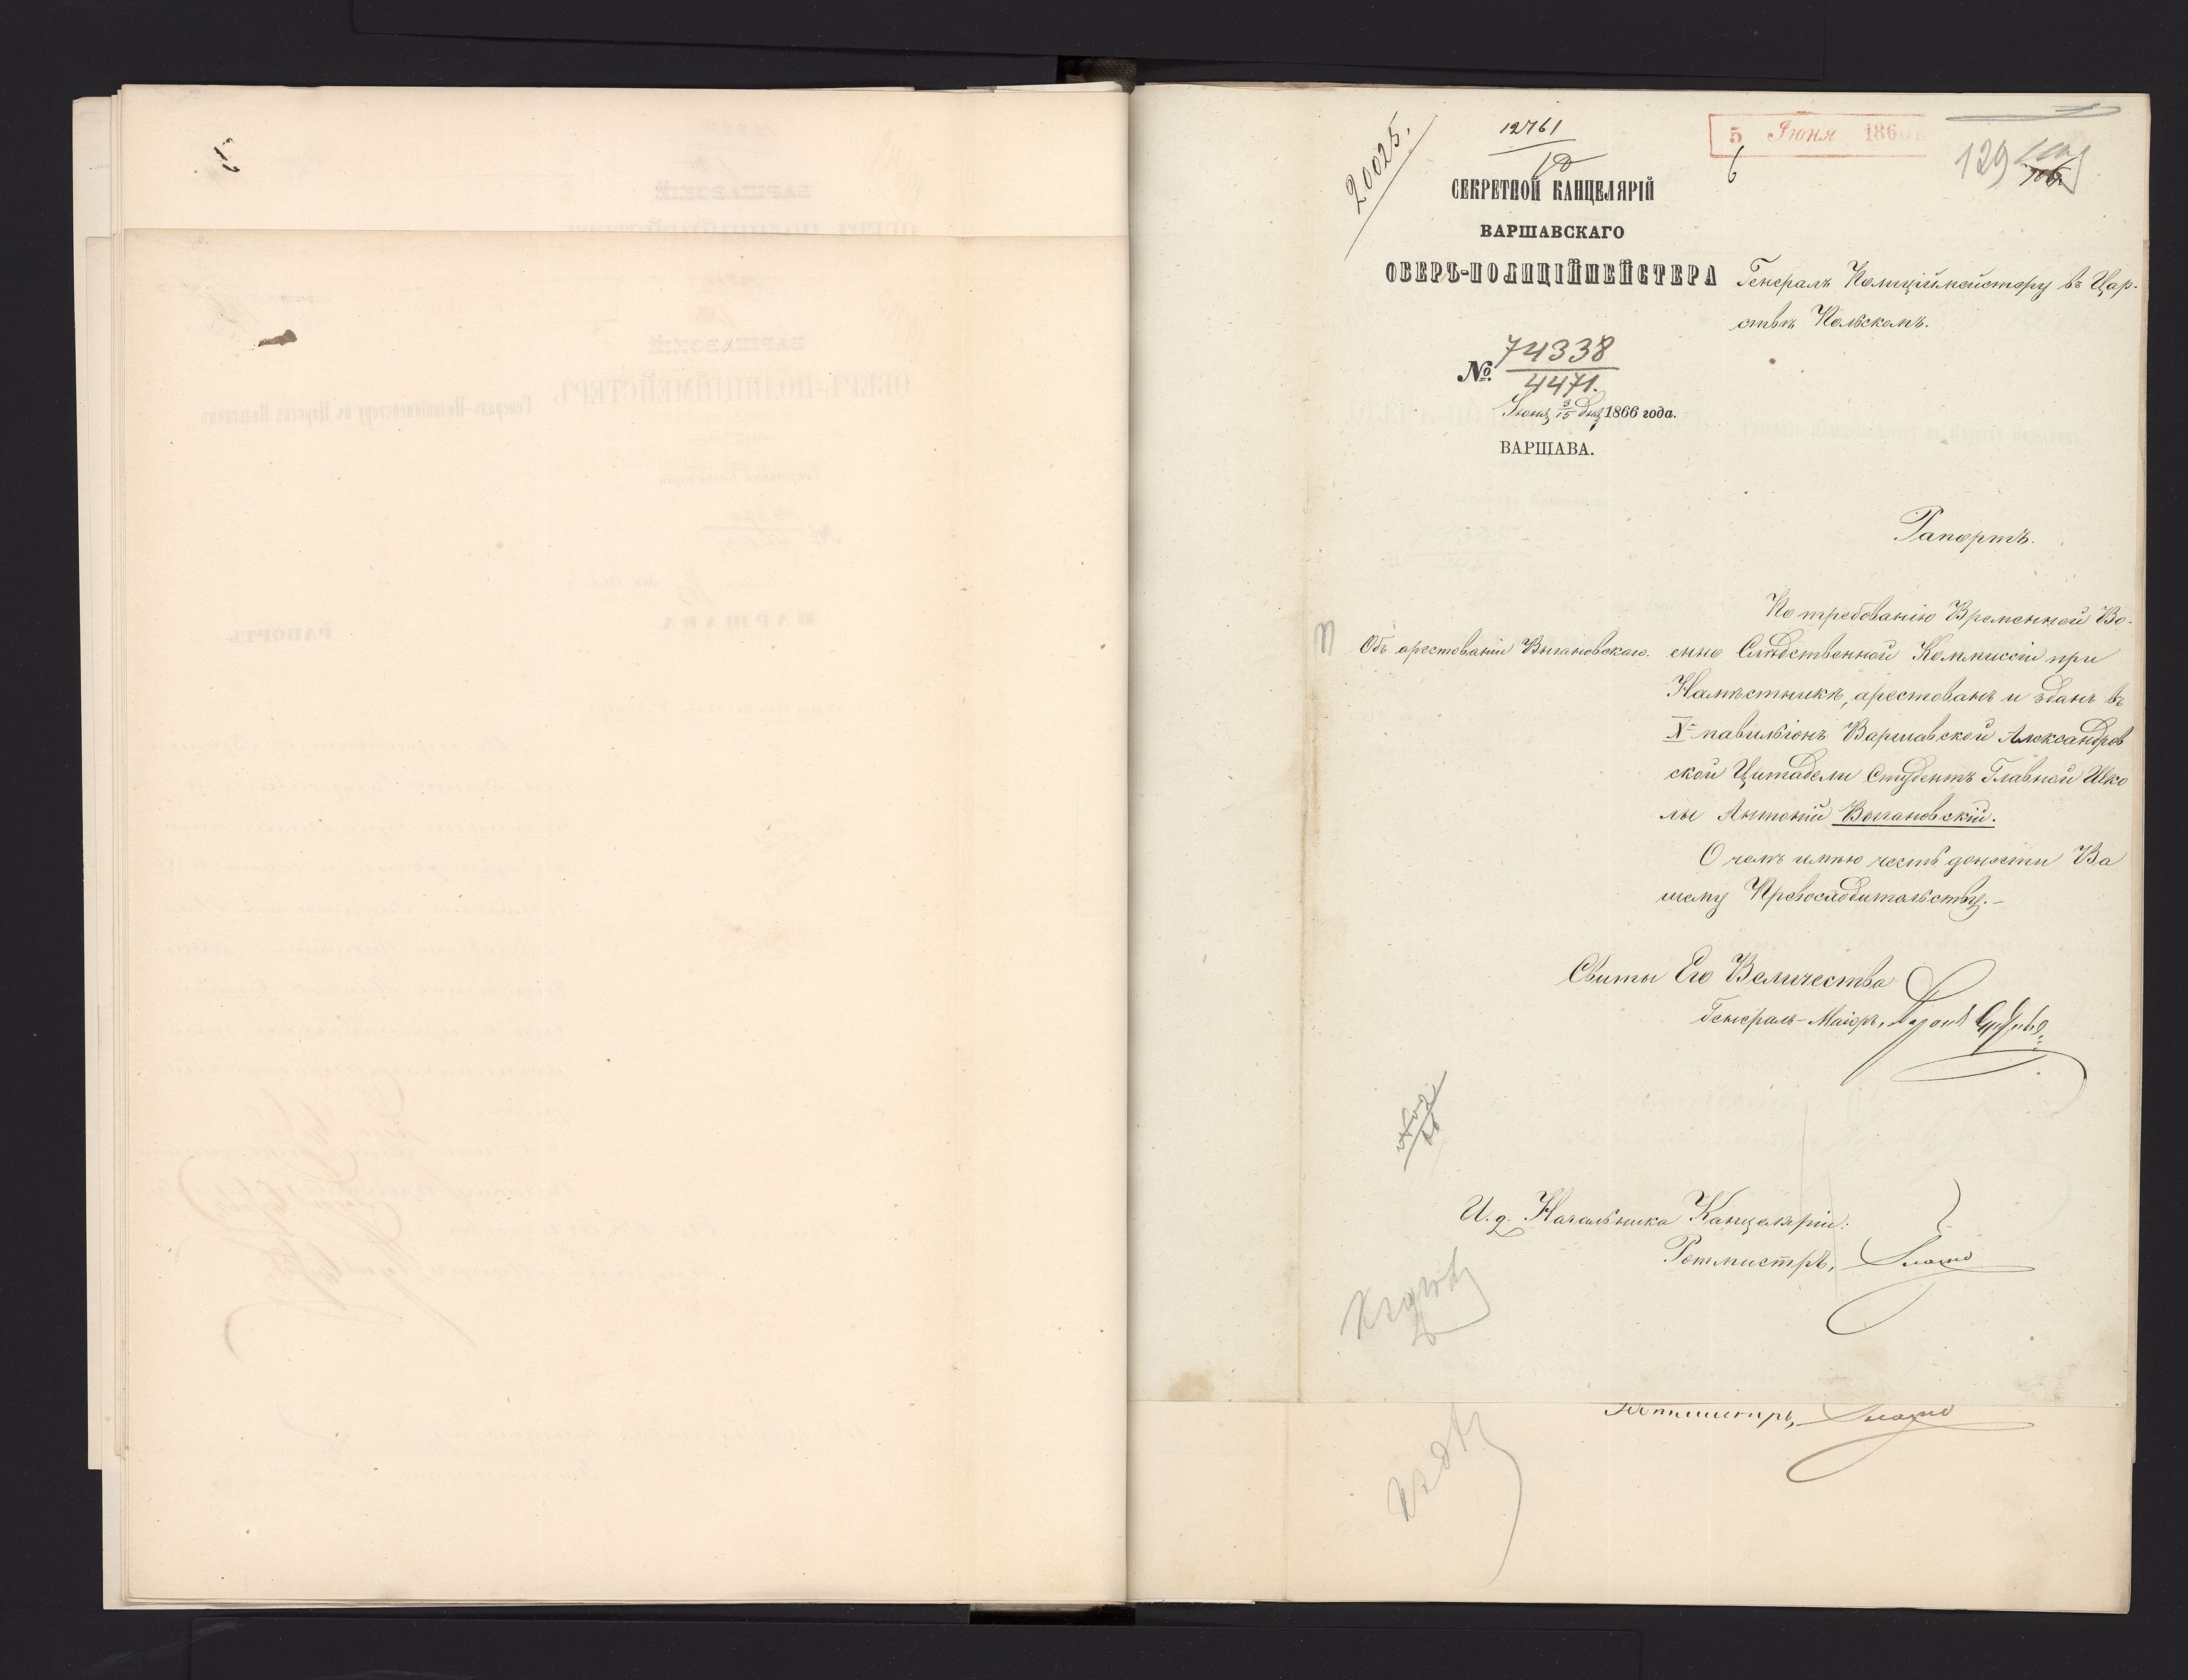 20025.
12761
5 Июня 186
6
129
СЕКРЕТНОЙ КАНЦЕЛЯРІЙ
ВАРШАВСКАГО
ОБЕРЪ-ПОЛИЦІЙМЕЙСТЕРА
Генералъ Полиціймейстеру въ Цар-
ствѣ Польскомъ.
№ 74338
4471.
Іюня 3/15 дня 1866 года.
ВАРШАВА.
Рапортъ.
Объ арестованіи Выгановскаго.
По требованію Временной Во-
енно Слѣдственной Коммиссіи при
Намѣстникѣ, арестованъ и зданъ въ
X павильіонъ Варшавской Александров
ской Цитадели Студентъ Главной Шко
лы Антоній Выгановскій.
О чемъ имѣю честь донести Ва
шему Превосходительству.-
Свиты Его Величества
Генералъ-Маіоръ, Баронъ
И. д. Начальника Канцеляріи:
Ротмистръ,
Ротмистръ,
ВАРШАВСКІЙ
ОБЕРЪ-ПОЛИЦІЙМЕЙСТЕРЪ
Генералъ-Полиціймейстеру въ Царствѣ Польскомъ
ВАРШАВА
РАПОРТЪ